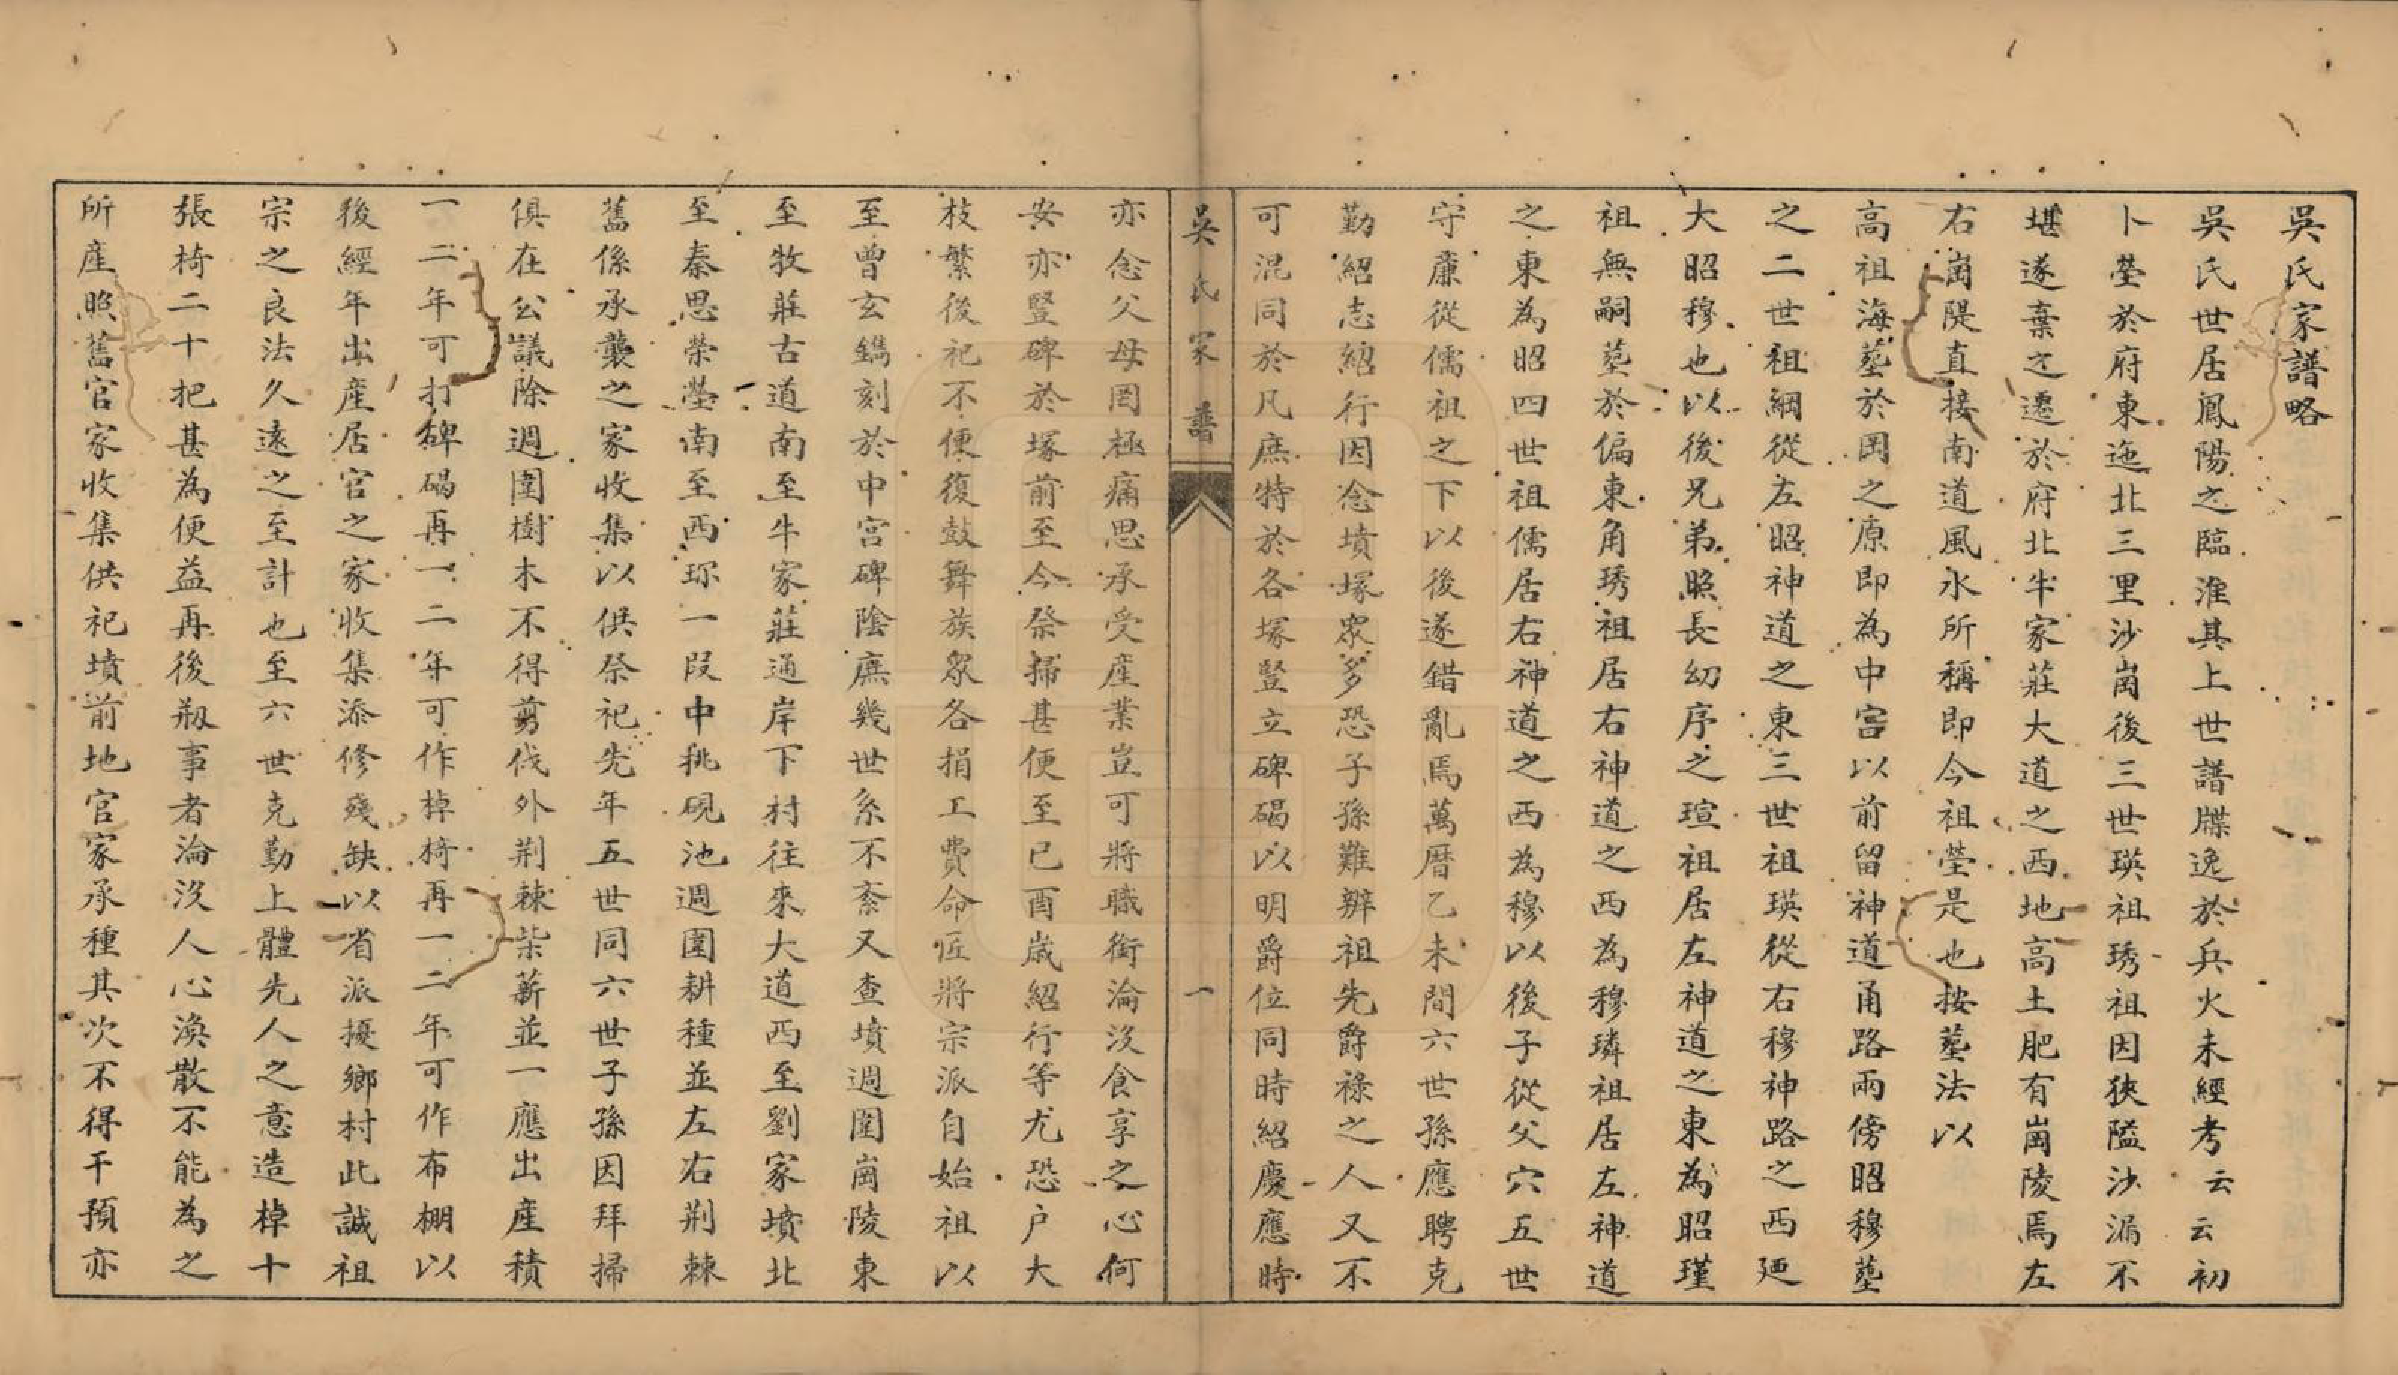 吳氏家譜略
吳氏世居鳳陽之臨淮其上世譜牒逸於兵火未經考云云初
卜塋於府東迤北三里沙崗後三世瑛祖琇祖因狹隘沙漏不
堪遂棄之遷於府北牛家莊大道之西地高土肥有崗陵焉左
右崗隄直接南道風水所稱即今祖塋是也按墓法以
高祖海墓於岡之原即為中宮以前留神道甬路兩傍昭穆墓
之二世祖綱從左昭神道之東三世祖瑛從右穆神路之西廼
大昭穆也以後兄弟照長幼序之瑄祖居左神道之東為昭瑾
祖無嗣墓於偏東角琇祖居右神道之西為穆璘祖居左神道
之東為昭四世祖儒居右神道之西為穆以後子從父穴五世
守亷從儒祖之下以後遂錯亂焉萬曆乙未間六世孫應聘克
勤紹志紹行因念墳塚眾多恐子孫難辨祖先爵祿之人又不
可混同於凡庶特於各塚豎立碑碣以明爵位同時紹慶應時
吳氏家譜
一
亦念父母罔極痛思承受產業豈可將職銜淪沒食享之心何
安亦豎碑於塚前至今祭掃甚便至己酉歲紹行等尤恐户大
枝繁後祀不便復鼓舞族眾各捐工費命匠將宗派自始祖以
至曾玄鐫刻於中宮碑陰庶幾世系不紊又查墳週圍崗陵東
至牧莊古道南至牛家莊通岸下村往來大道西至劉家墳北
至秦思榮塋南至西琢一段中挑硯池週圍耕種並左右荆棘
舊係承襲之家收集以供祭祀先年五世同六世子孫因拜掃
俱在公議除週圍樹木不得剪伐外荆棘柴薪並一應出產積
一二年可打碑碣再一二年可作棹椅再一二年可作布棚以
後經年出產居官之家收集添修殘缺以省派擾鄉村此誠祖
宗之良法久遠之至計也至六世克勤上體先人之意造棹十
張椅二十把甚為便益再後剏事者淪沒人心渙散不能為之
所產照舊官家收集供祀墳前地官家承種其次不得干預亦